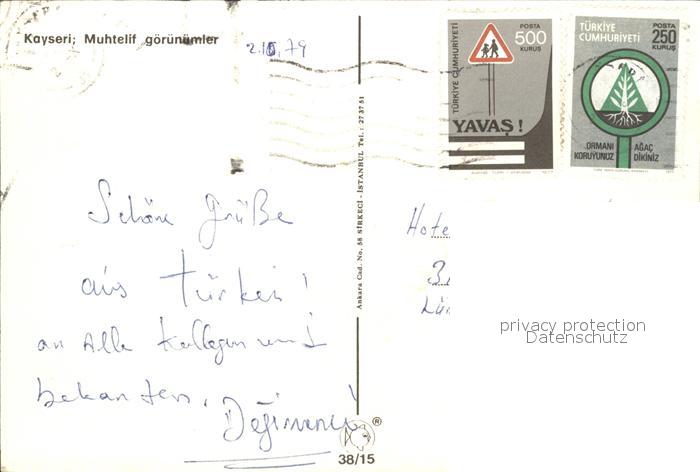 Kayseri; Muhtelif görünümler
2.10.79
TÜRKİYE CUMHURİYETİ
POSTA
500
KURUŞ
YAVAŞ!
TÜRKİYE
CUMHURİYETİ
POSTA
250
KURUŞ
ORMANI
KORUYUNUZ
AĞAÇ
DİKİNİZ
Ankara Cad. No. 58 SİRKECİ - İSTANBUL Tel.: 27 37 51
Schöne Grüße
aus Türkei!
an Alle Kollegen und
bekannten.
Hote
privacy protection
Datenschutz
®
38/15